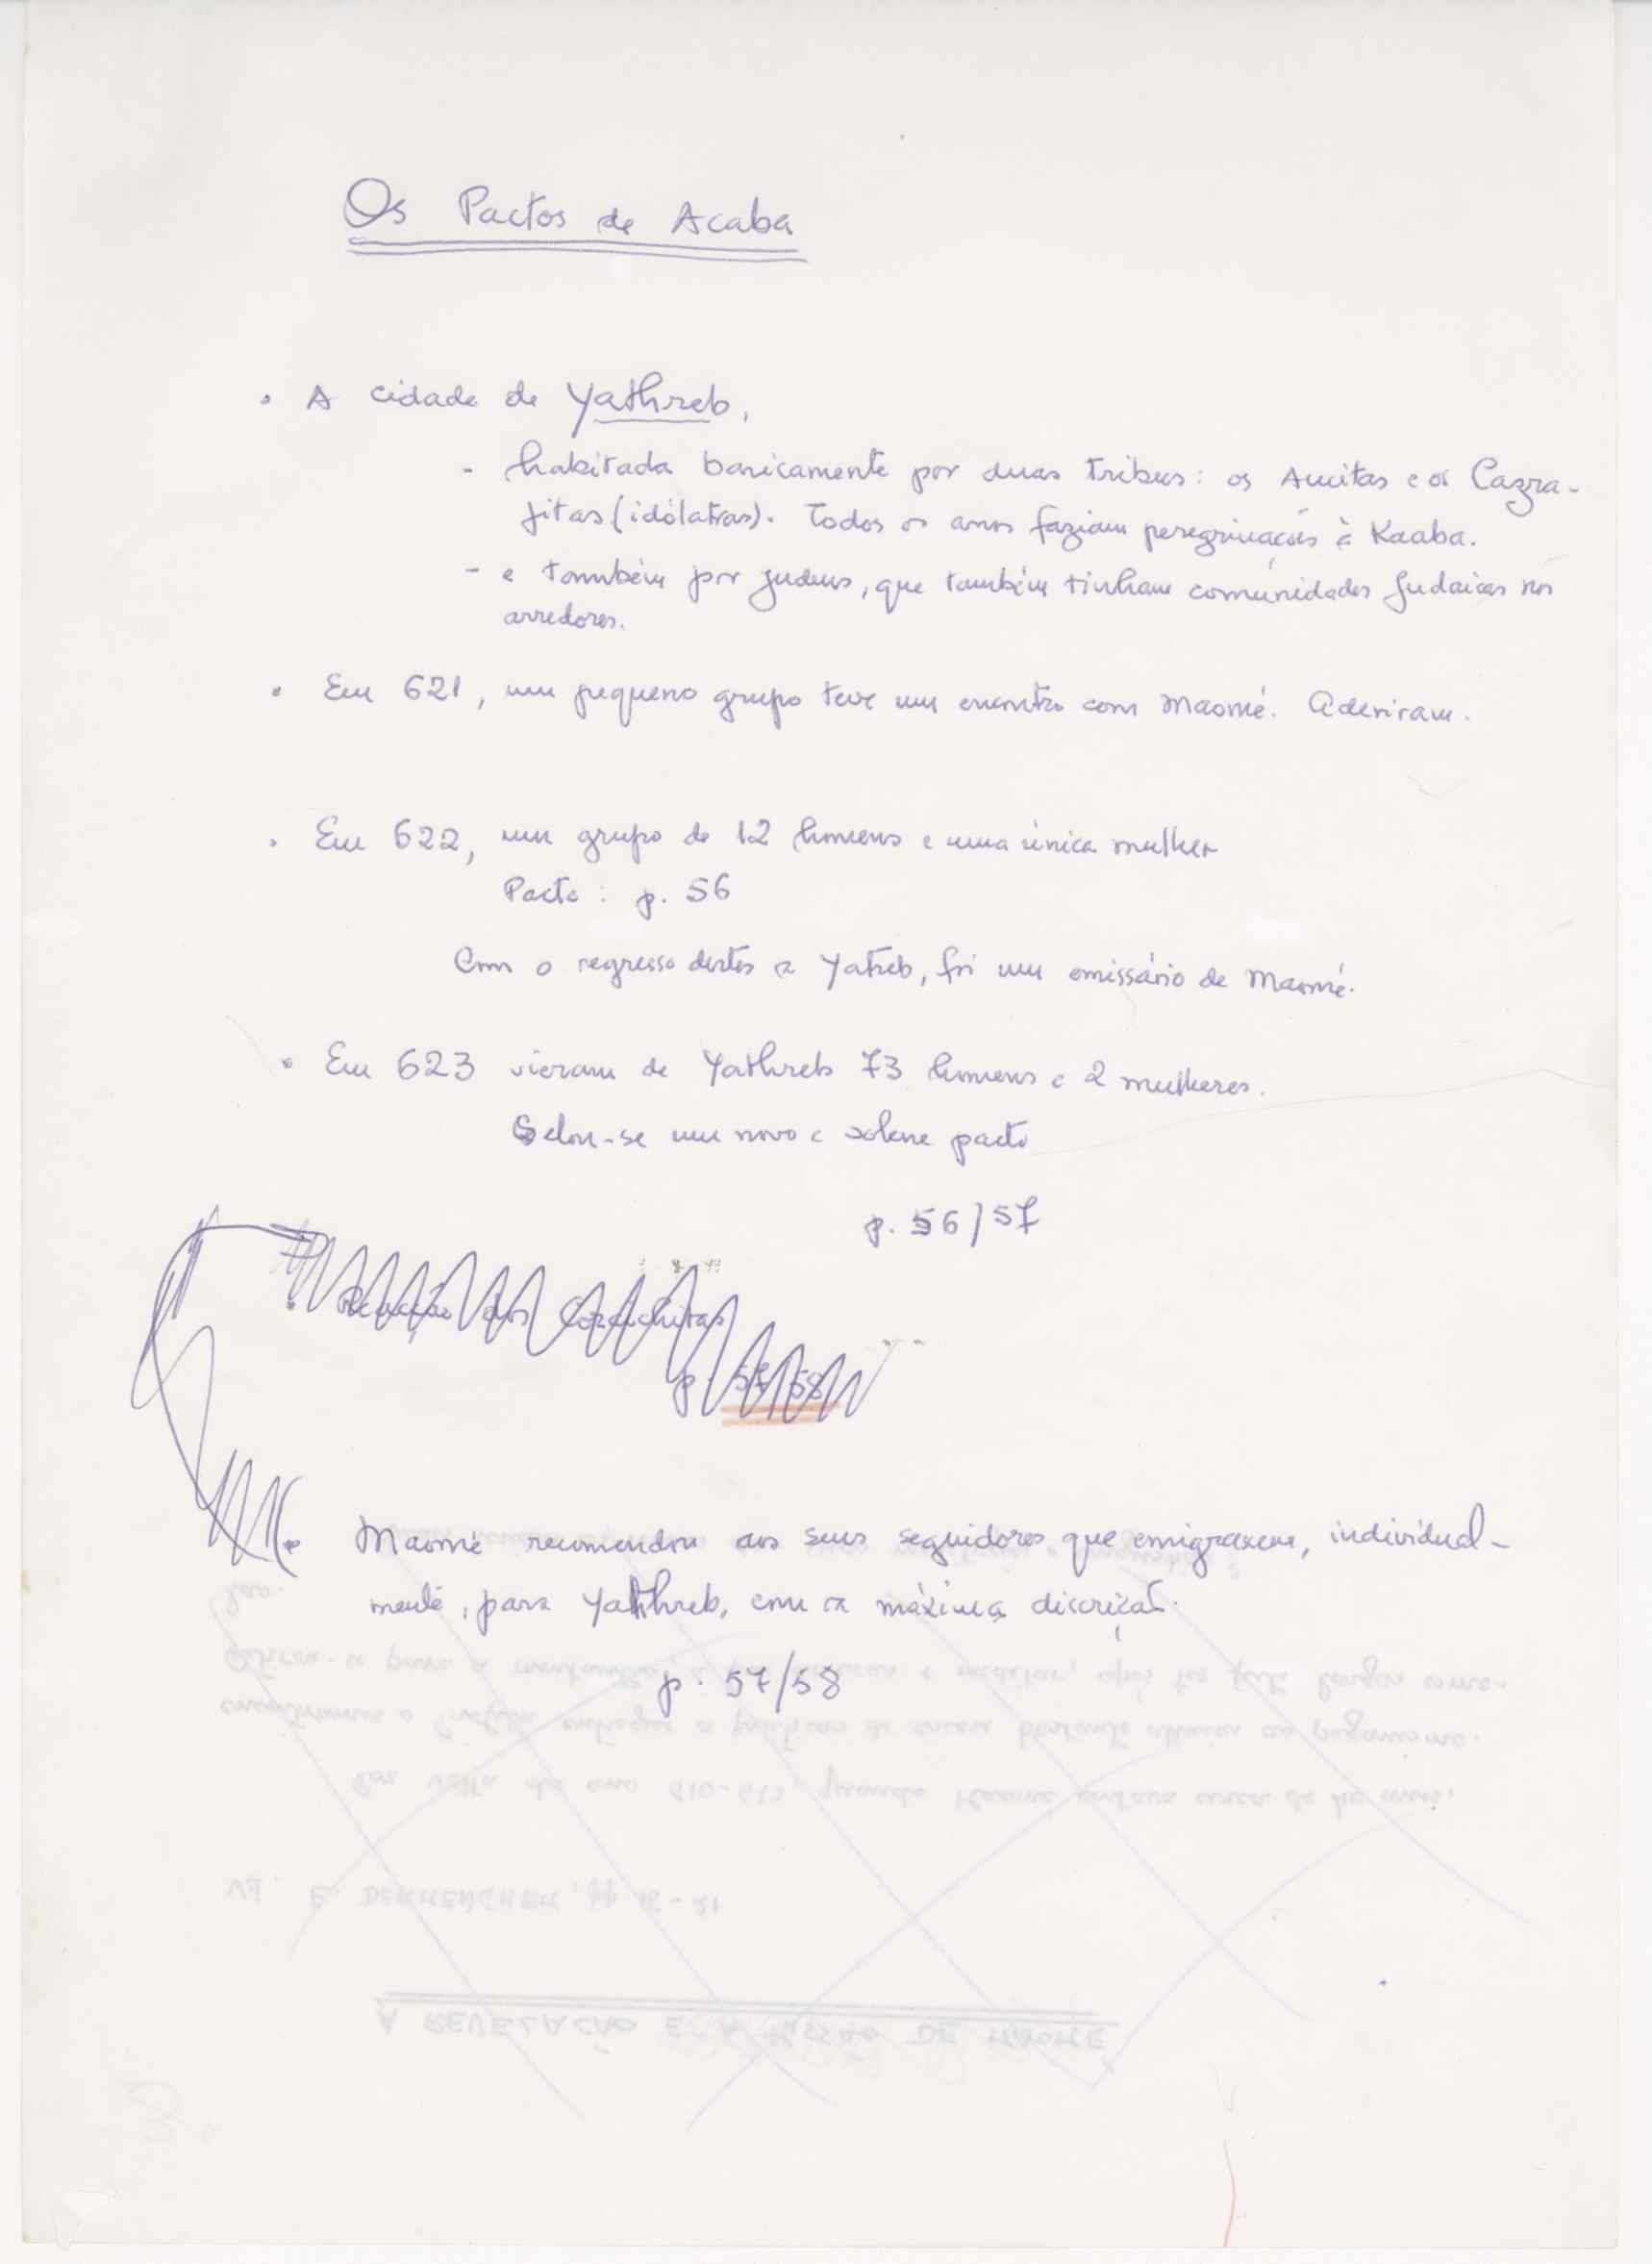 Os Pactos de Acaba
• A cidade de Yathreb,
- habitada basicamente por duas tribus: os Aucitas e os Cazra-
jitas (idólatras). Todos os anos faziam peregrinações à Kaaba.
- e também por judeus, que também tinham comunidades judaicas nos
arredores.
• Em 621, um pequeno grupo teve um encontro com Maomé. Aderiram.
• Em 622, um grupo de 12 homens e uma única mulher
Pacto: p. 56
Com o regresso destes a Yatreb, foi um emissário de Maomé.
• Em 623 vieram de Yathreb 73 homens e 2 mulheres.
Selou-se um novo e solene pacto
p. 56/57
• Reacção dos Coraichitas
p. 57/58
• Maomé recomendou aos seus seguidores que emigrassem, individual-
mente, para Yathreb, com a máxima discrição.
p. 57/58
Vd. E. DERMENGHEM, pp 15-21
A REVELAÇÃO E A MISSÃO DE MAOMÉ